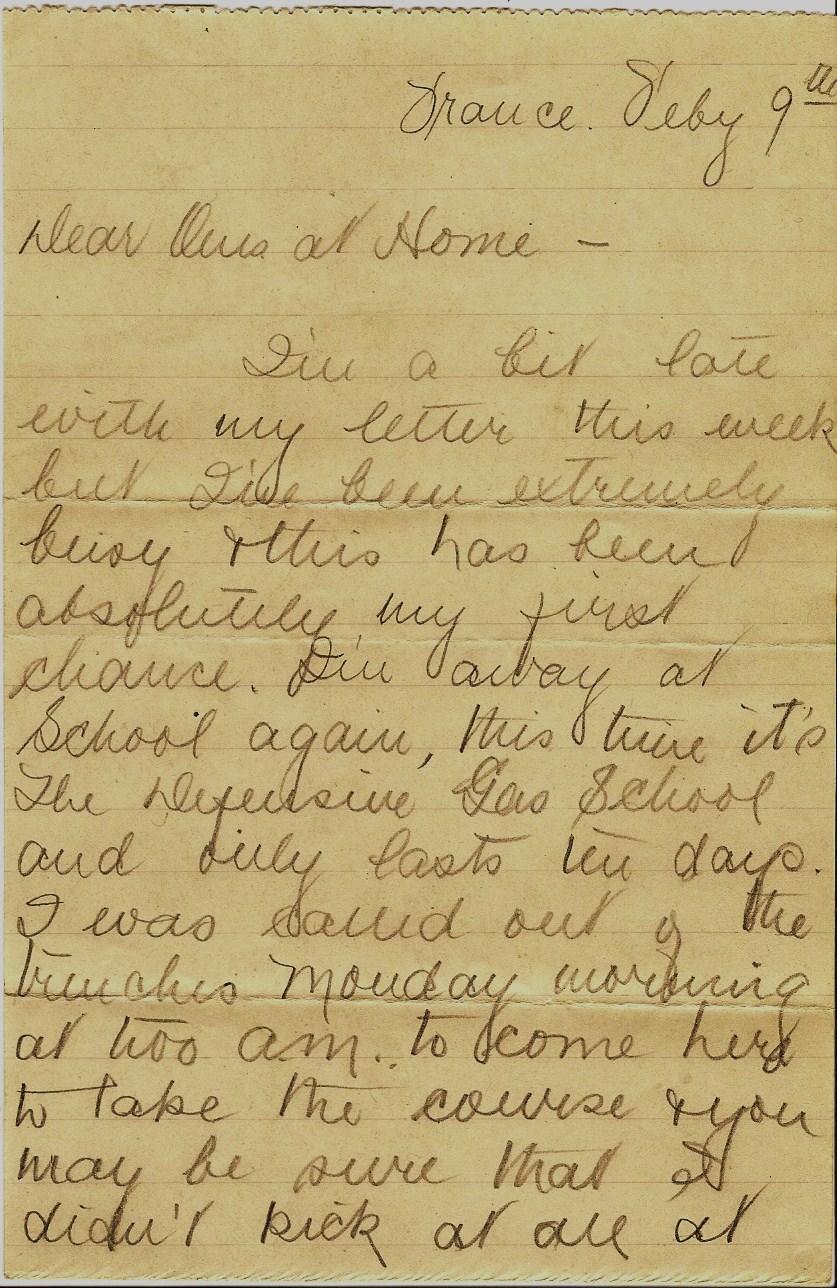 France. Feby 9th
Dear Ones at Home -
I'm a bit late
with my letter this week
but I've been extremely
busy & this has been
absolutely my first
chance. I'm away at
School again, this time it's
The Defensive Gas School
and only lasts ten days.
I was called out of the
trenches Monday morning
at two am. to come here
to take the course & you
may be sure that I
didn't kick at all at